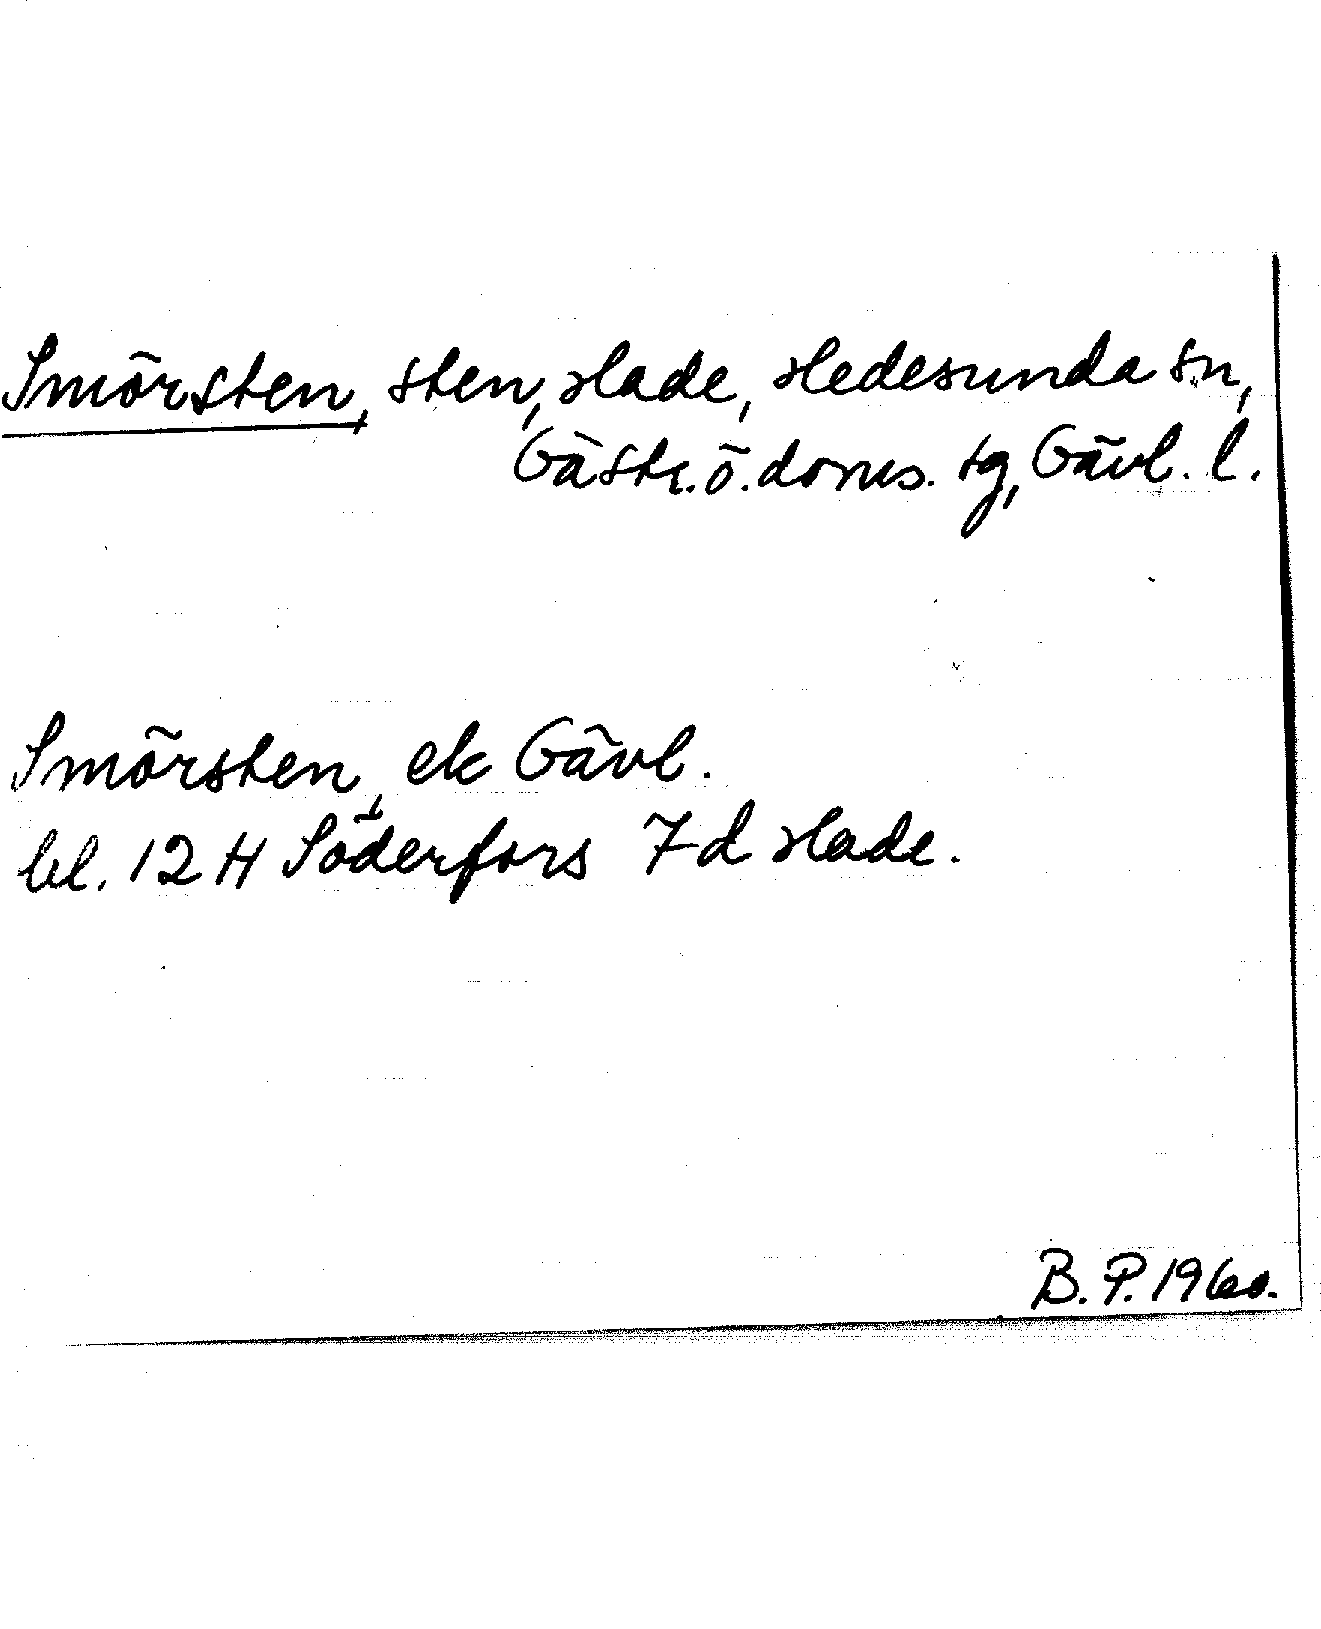 Smörsten, sten, Hade, Hedesunda sn,
Gästr. ö. doms. tg, Gävl. l.
Smörsten, ek Gävl.
bl. 12 H Söderfors 7d Hade.
B. P. 1960.